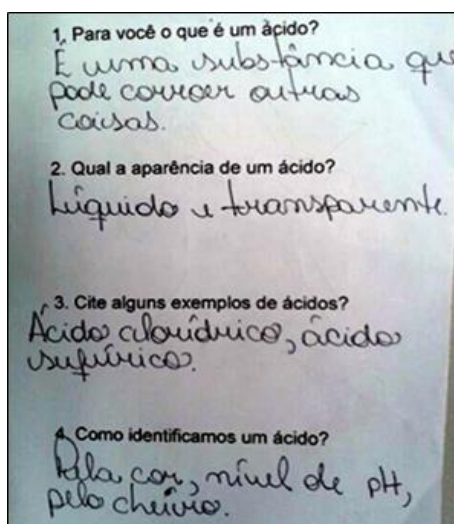 1. Para você o que é um ácido?
É uma substância que
pode corroer outras
coisas.
2. Qual a aparência de um ácido?
Líquido e transparente.
3. Cite alguns exemplos de ácidos?
Ácido clorídrico, ácido
sufúrico.
4. Como identificamos um ácido?
Pela cor, nível de pH,
pelo cheiro.